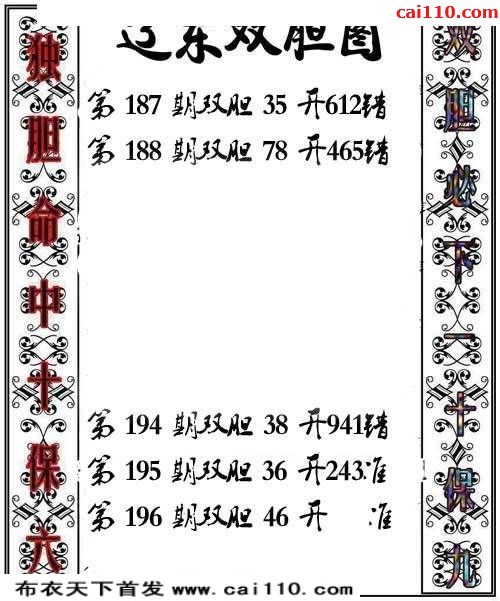 cai110.com
辽东双胆图
独胆命中十保六
第 187 期双胆 35 开612错
第 188 期双胆 78 开465错
第 194 期双胆 38 开941错
第 195 期双胆 36 开243准
第 196 期双胆 46 开 准
双胆必下一十保九
布衣天下首发 www.cai110.com